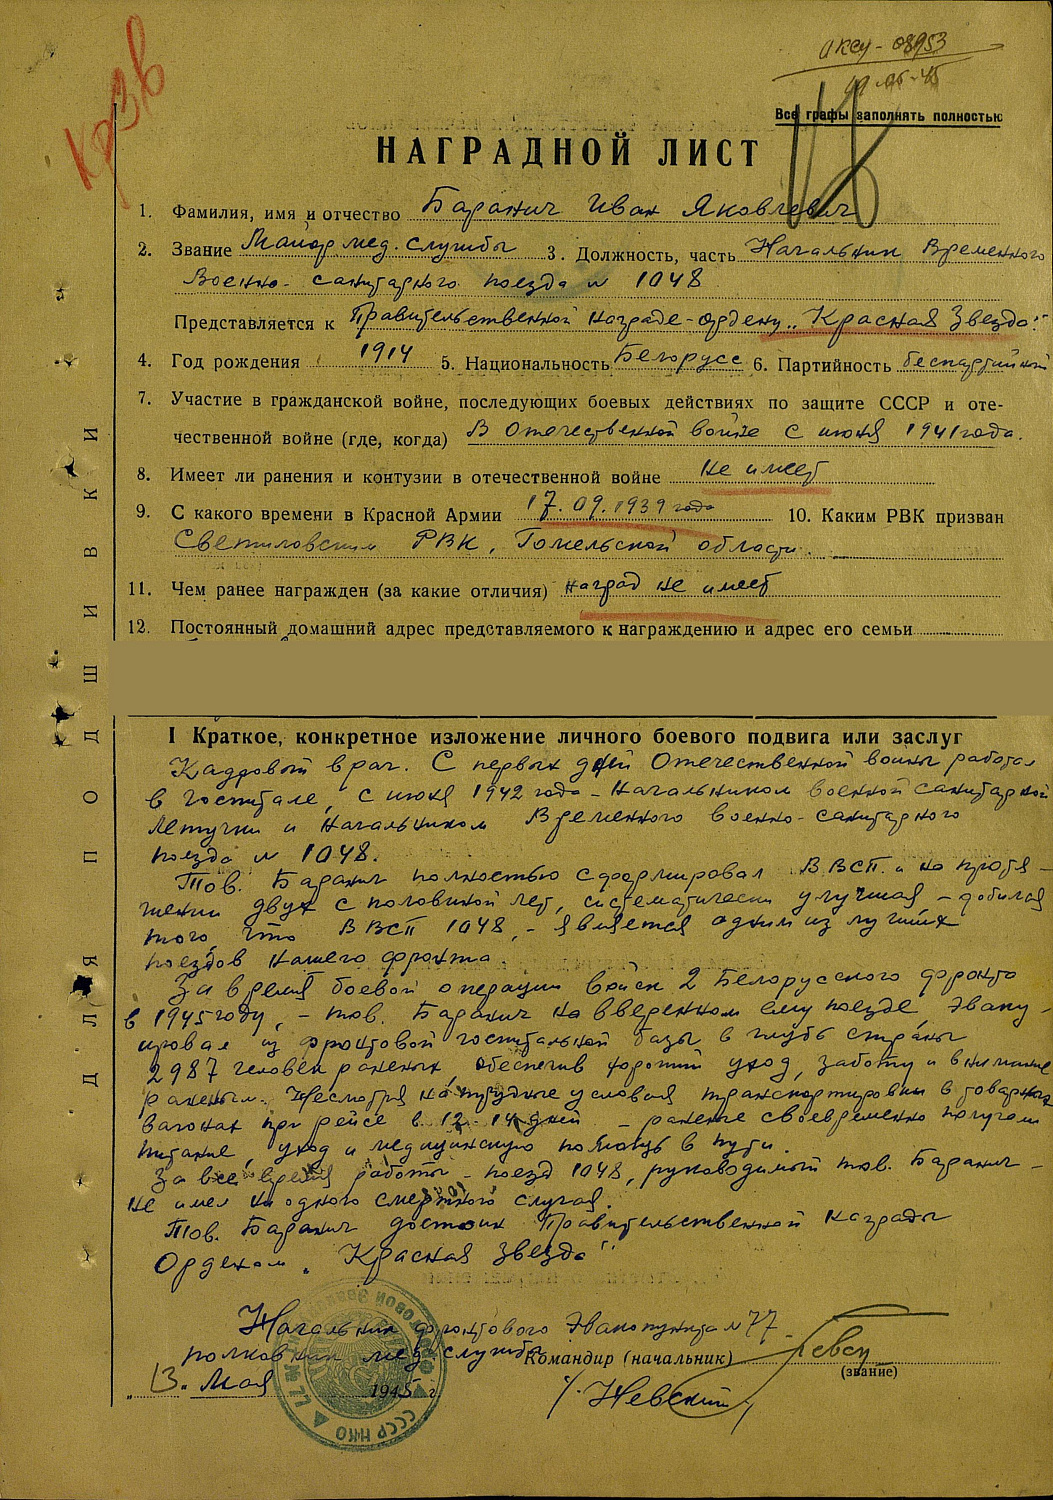 КрЗв
Все графы заполнять полностью
НАГРАДНОЙ ЛИСТ
1. Фамилия, имя и отчество Баранич Иван Яковлевич
2. Звание Майор мед. службы 3. Должность, часть Начальник Временного
Военно-санитарного поезда № 1048
Представляется к Правительственной награде-ордену „Красная Звезда"
4. Год рождения 1914 5. Национальность Белорусс 6. Партийность беспартийный
7. Участие в гражданской войне, последующих боевых действиях по защите СССР и оте-
чественной войне (где, когда) В Отечественной войне с июня 1941 года.
8. Имеет ли ранения и контузии в отечественной войне не имеет
9. С какого времени в Красной Армии 17.09.1939 года 10. Каким РВК призван
Светиловским РВК, Гомельской области.
11. Чем ранее награжден (за какие отличия) наград не имеет
12. Постоянный домашний адрес представляемого к награждению и адрес его семьи
ДЛЯ ПОДШИВКИ
I Краткое, конкретное изложение личного боевого подвига или заслуг
Кадровый врач. С первых дней Отечественной войны работал
в госпитале, с июня 1942 года - Начальником военной санитарной
летучки и Начальником Временного военно-санитарного
поезда № 1048.
Тов. Баранич полностью сформировал ВВСП и на протя-
жении двух с половиной лет, систематически улучшая, - добился
того, что ВВСП 1048, - является одним из лучших
поездов нашего фронта.
За время боевой операции войск 2 Белорусского фронта
в 1945 году, - тов. Баранич на вверенном ему поезде, эваку-
ировал из фронтовой госпитальной базы в глубь страны
2987 человек раненых обеспечив хороший уход, заботу и внимание
раненым. Несмотря на трудные условия транспортировки в товарных
вагонах при рейсе в 12-14 дней - раненые своевременно получали
питание, уход и медицинскую помощь в пути.
За все время работы - поезд 1048, руководимый тов. Баранич -
не имел ни одного смертного случая.
Тов. Баранич достоин Правительственной награды
Орденом „Красная Звезда"
Начальник фронтового Эвакопункта № 77
полковник мед. службы
Командир (начальник)
(звание)
„13" Мая 1945 г.
/Невский/
СССР НКО
№ 77